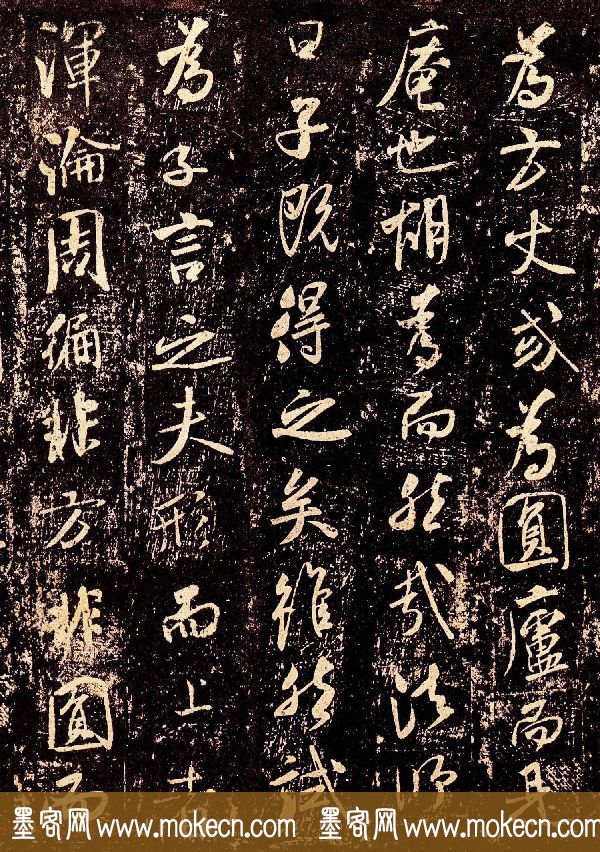 為方丈或為圓廬而是
庵也胡為而然哉法師
曰子既得之矣雖然試
為子言之夫形而上者
渾淪周徧非方非圓而
墨客网 www.mokecn.com 墨客网 www.mokecn.com